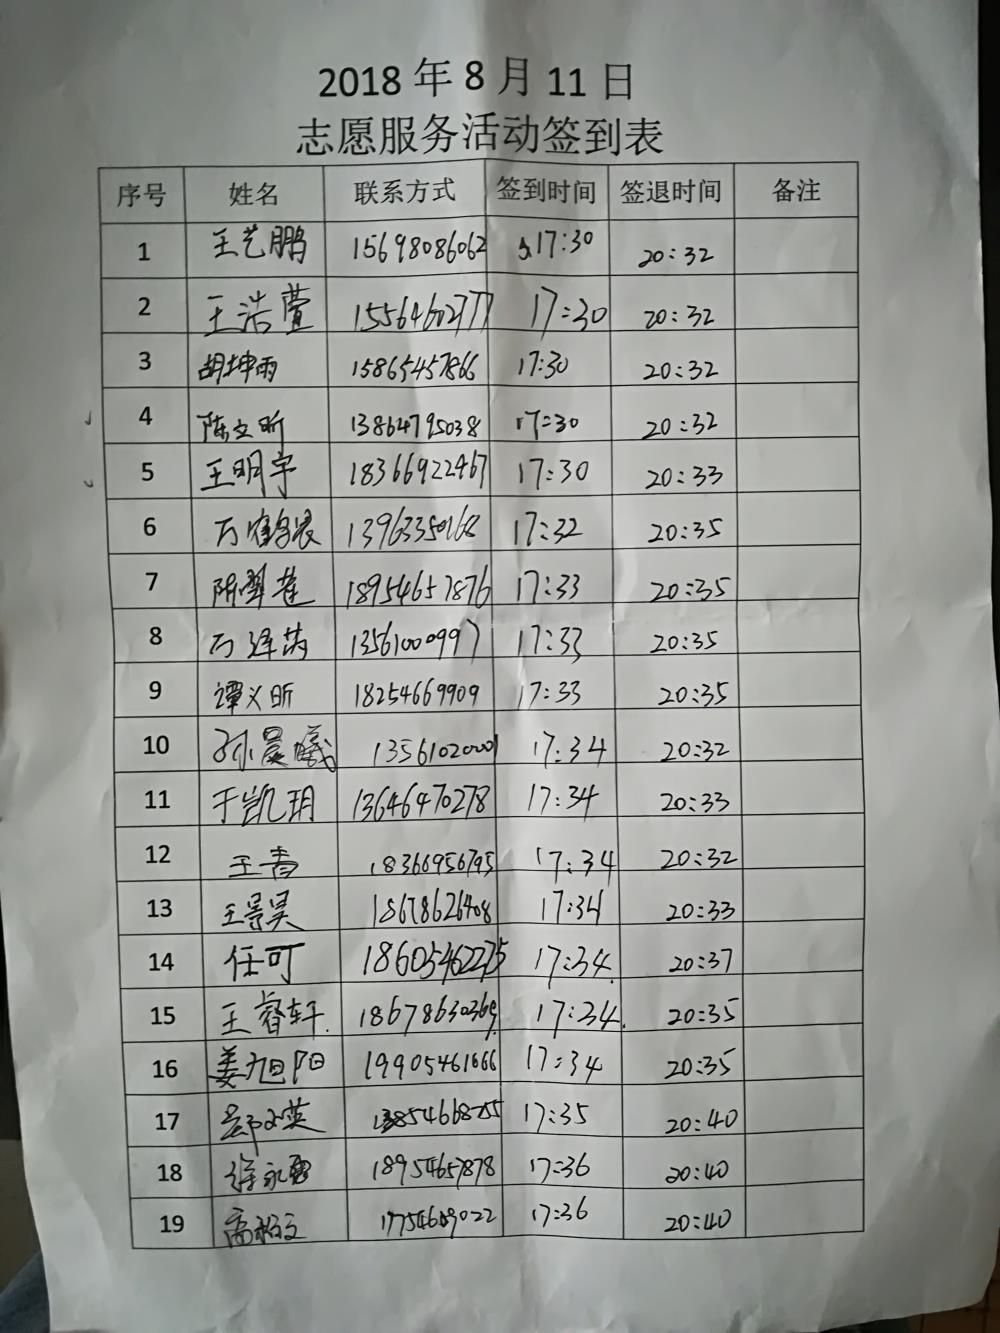 2018 年 8 月 11 日
志愿服务活动签到表
序号 姓名 联系方式 签到时间 签退时间 备注
1 王艺鹏 15698086062 17:30 20:32
2 王浩萱 15564602777 17:30 20:32
3 胡坤雨 15865457866 17:30 20:32
4 陈文昕 13864795038 17:30 20:32
5 王明宇 18366922467 17:30 20:33
6 17:32 20:35
7 18954657876 17:33 20:35
8 13561000997 17:33 20:35
9 谭义昕 18254669909 17:33 20:35
10 孙晨曦 17:34 20:32
11 于凯玥 13646470278 17:34 20:33
12 王青 18366956795 17:34 20:32
13 王景昊 18678626408 17:34 20:33
14 任可 18605462275 17:34 20:37
15 王睿轩 18678630369 17:34 20:35
16 姜旭阳 19905461666 17:34 20:35
17 17:35 20:40
18 徐永 18954657878 17:36 20:40
19 17:36 20:40